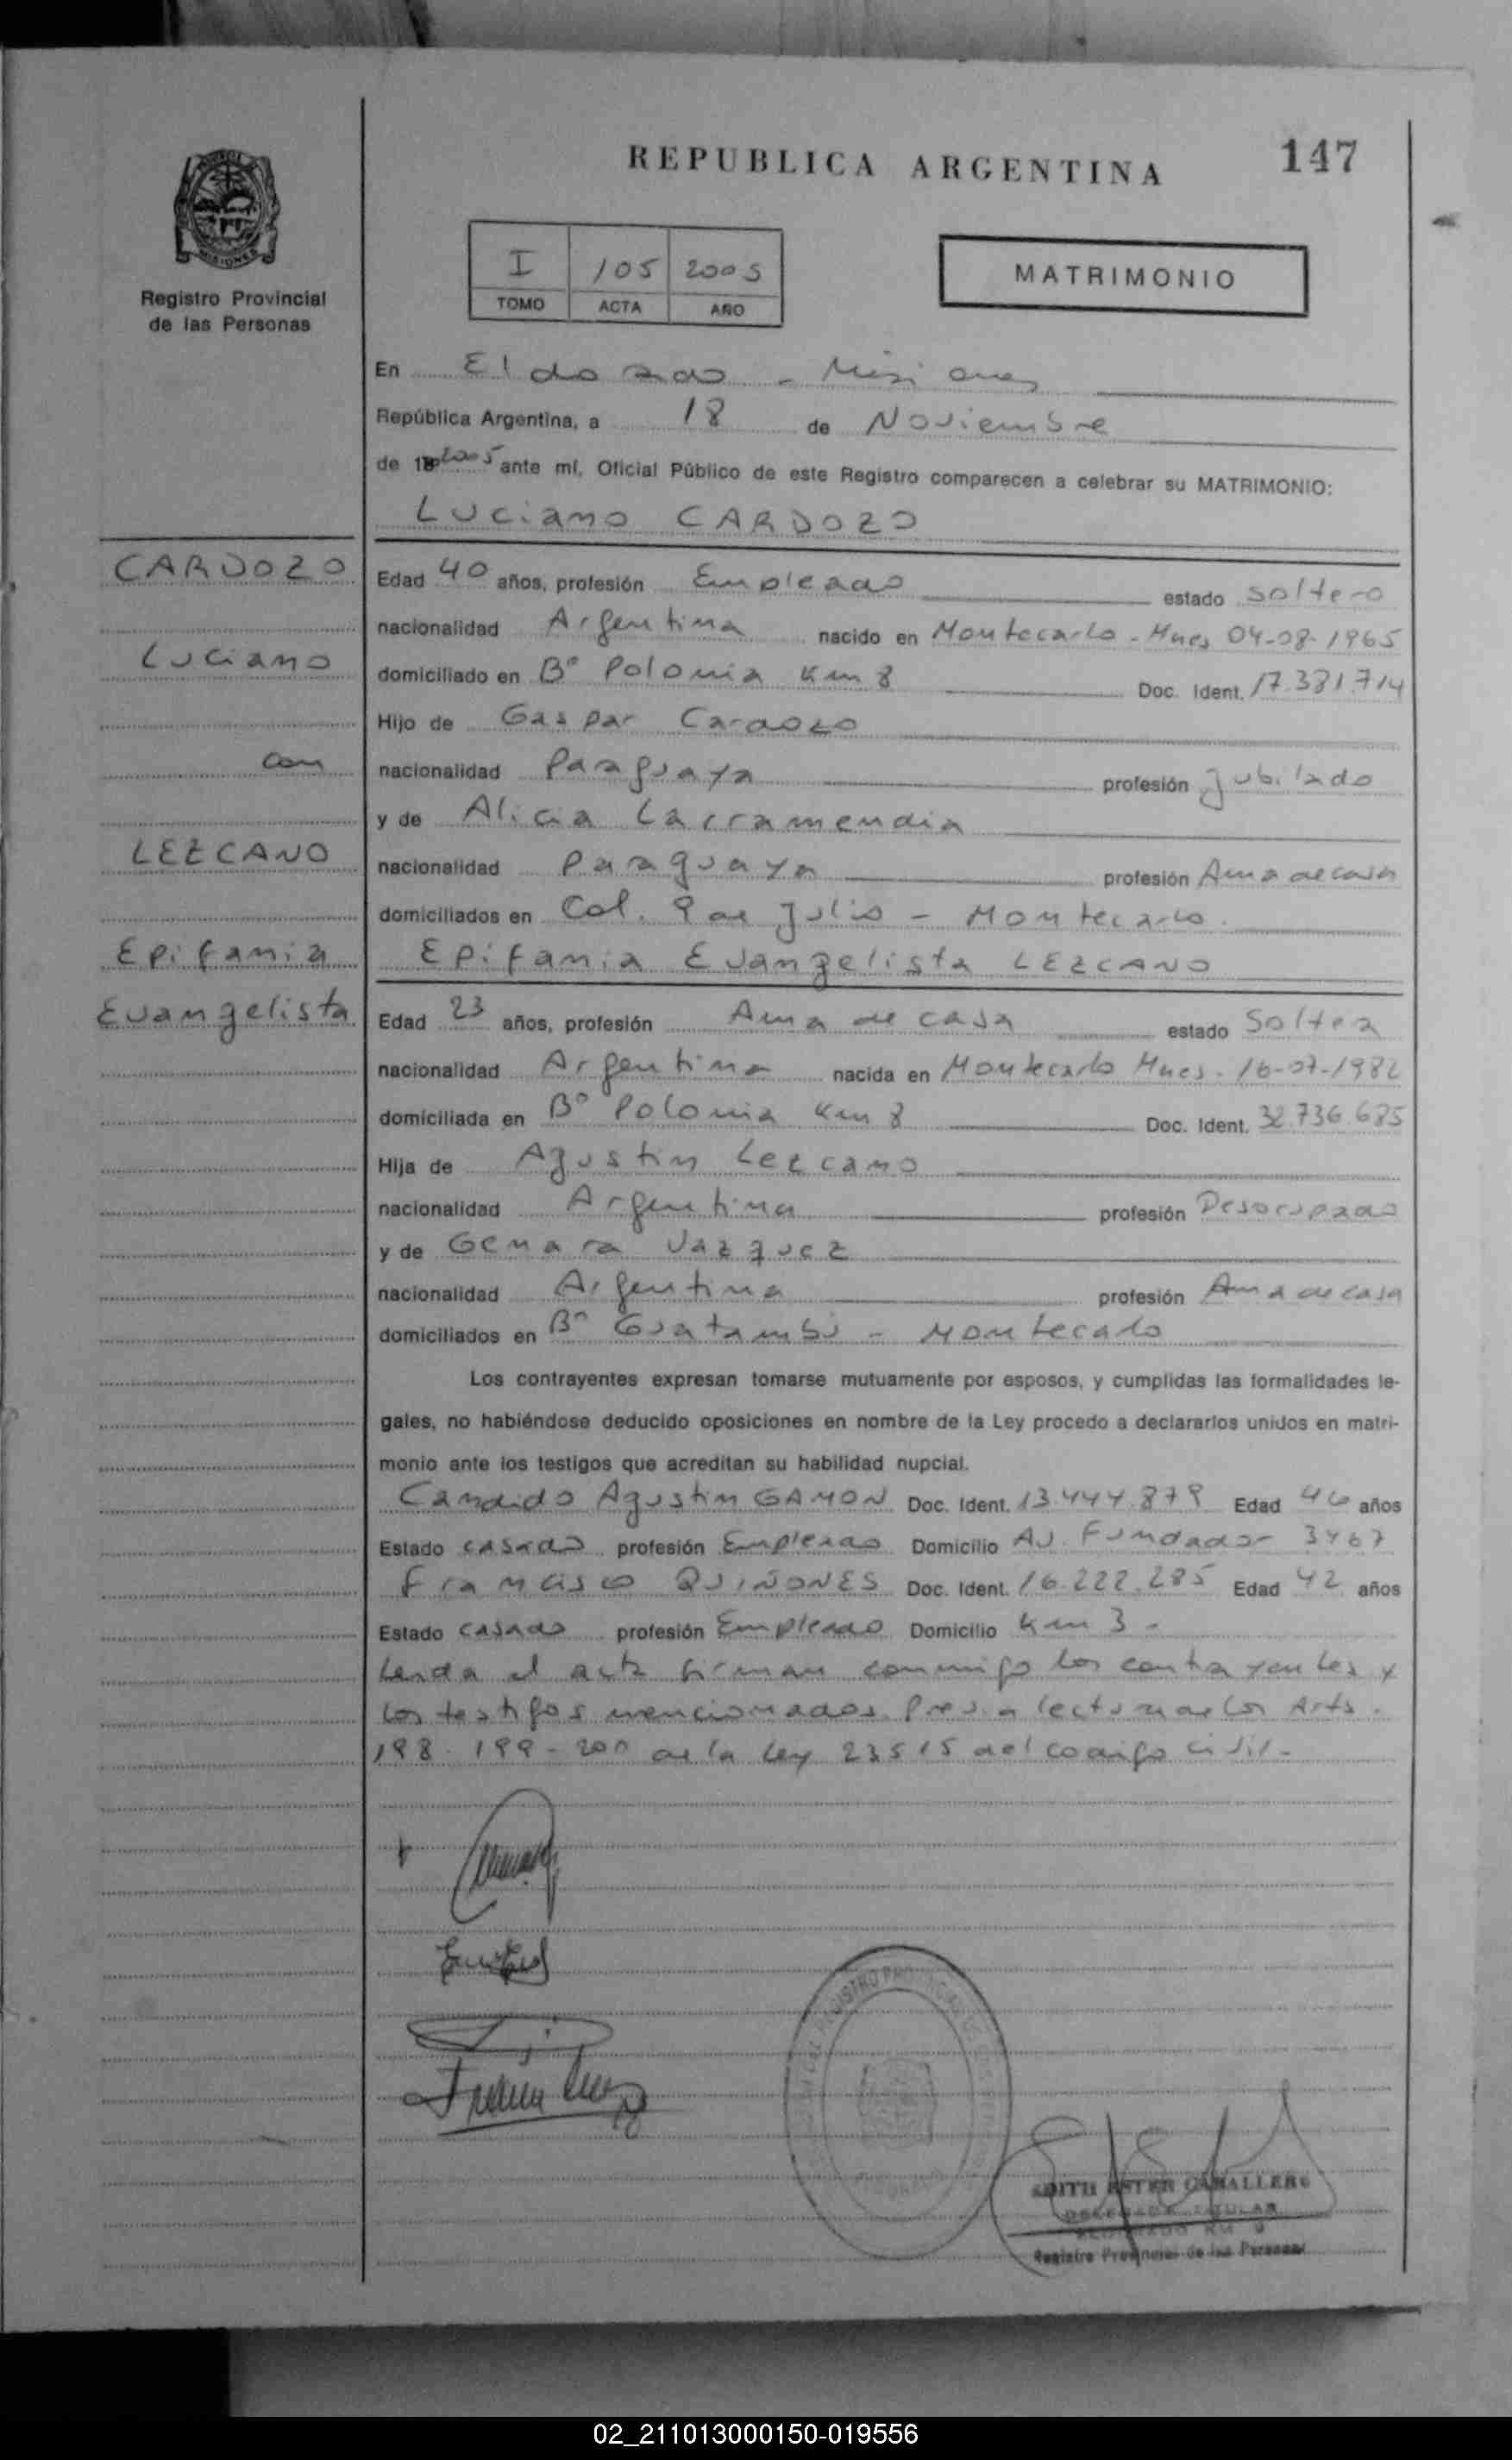 147
REPUBLICA ARGENTINA
MISIONES
Registro Provincial
de las Personas
I 105 2005
TOMO ACTA AÑO
MATRIMONIO
En Eldorado - Misiones
República Argentina, a 18 de Noviembre
de 2005 ante mí, Oficial Público de este Registro comparecen a celebrar su MATRIMONIO:
Luciano CARDOZO
CARDOZO
Luciano
con
LEZCANO
Epifania
Evangelista
Edad 40 años, profesión Empleado estado soltero
nacionalidad Argentina nacido en Montecarlo - Mnes 04-08-1965
domiciliado en B° Polonia Km 8 Doc. Ident. 17.381.714
Hijo de Gaspar Cardozo
nacionalidad Paraguaya profesión Jubilado
y de Alicia Larramendia
nacionalidad Paraguaya profesión Ama de casa
domiciliados en Col. 9 de Julio - Montecarlo.
Epifania Evangelista LEZCANO
Edad 23 años, profesión Ama de casa estado Soltera
nacionalidad Argentina nacida en Montecarlo Mnes. 16-07-1982
domiciliada en B° Polonia Km 8 Doc. Ident. 32.736.685
Hija de Agustin Lezcano
nacionalidad Argentina profesión Desocupado
y de Genara Vazquez
nacionalidad Argentina profesión Ama de casa
domiciliados en B° Guatambú - Montecarlo
Los contrayentes expresan tomarse mutuamente por esposos, y cumplidas las formalidades le-
gales, no habiéndose deducido oposiciones en nombre de la Ley procedo a declararlos unidos en matri-
monio ante los testigos que acreditan su habilidad nupcial.
Candido Agustin GAMON Doc. Ident. 13.444.879 Edad 46 años
Estado casado profesión Empleado Domicilio Av. Fundador 3467
Francisco QUIÑONES Doc. Ident. 16.222.285 Edad 42 años
Estado casado profesión Empleado Domicilio Km 3 -
Leida el acta firman conmigo los contrayentes y
los testigos mencionados. Previa lectura de los Arts.
198. 199 - 200 de la Ley 23515 del codigo civil -
EDITH ESTER CABALLERO
DELEGADA TITULAR
ELDORADO KM 9
Registro Provincial de las Personas
02_211013000150-019556